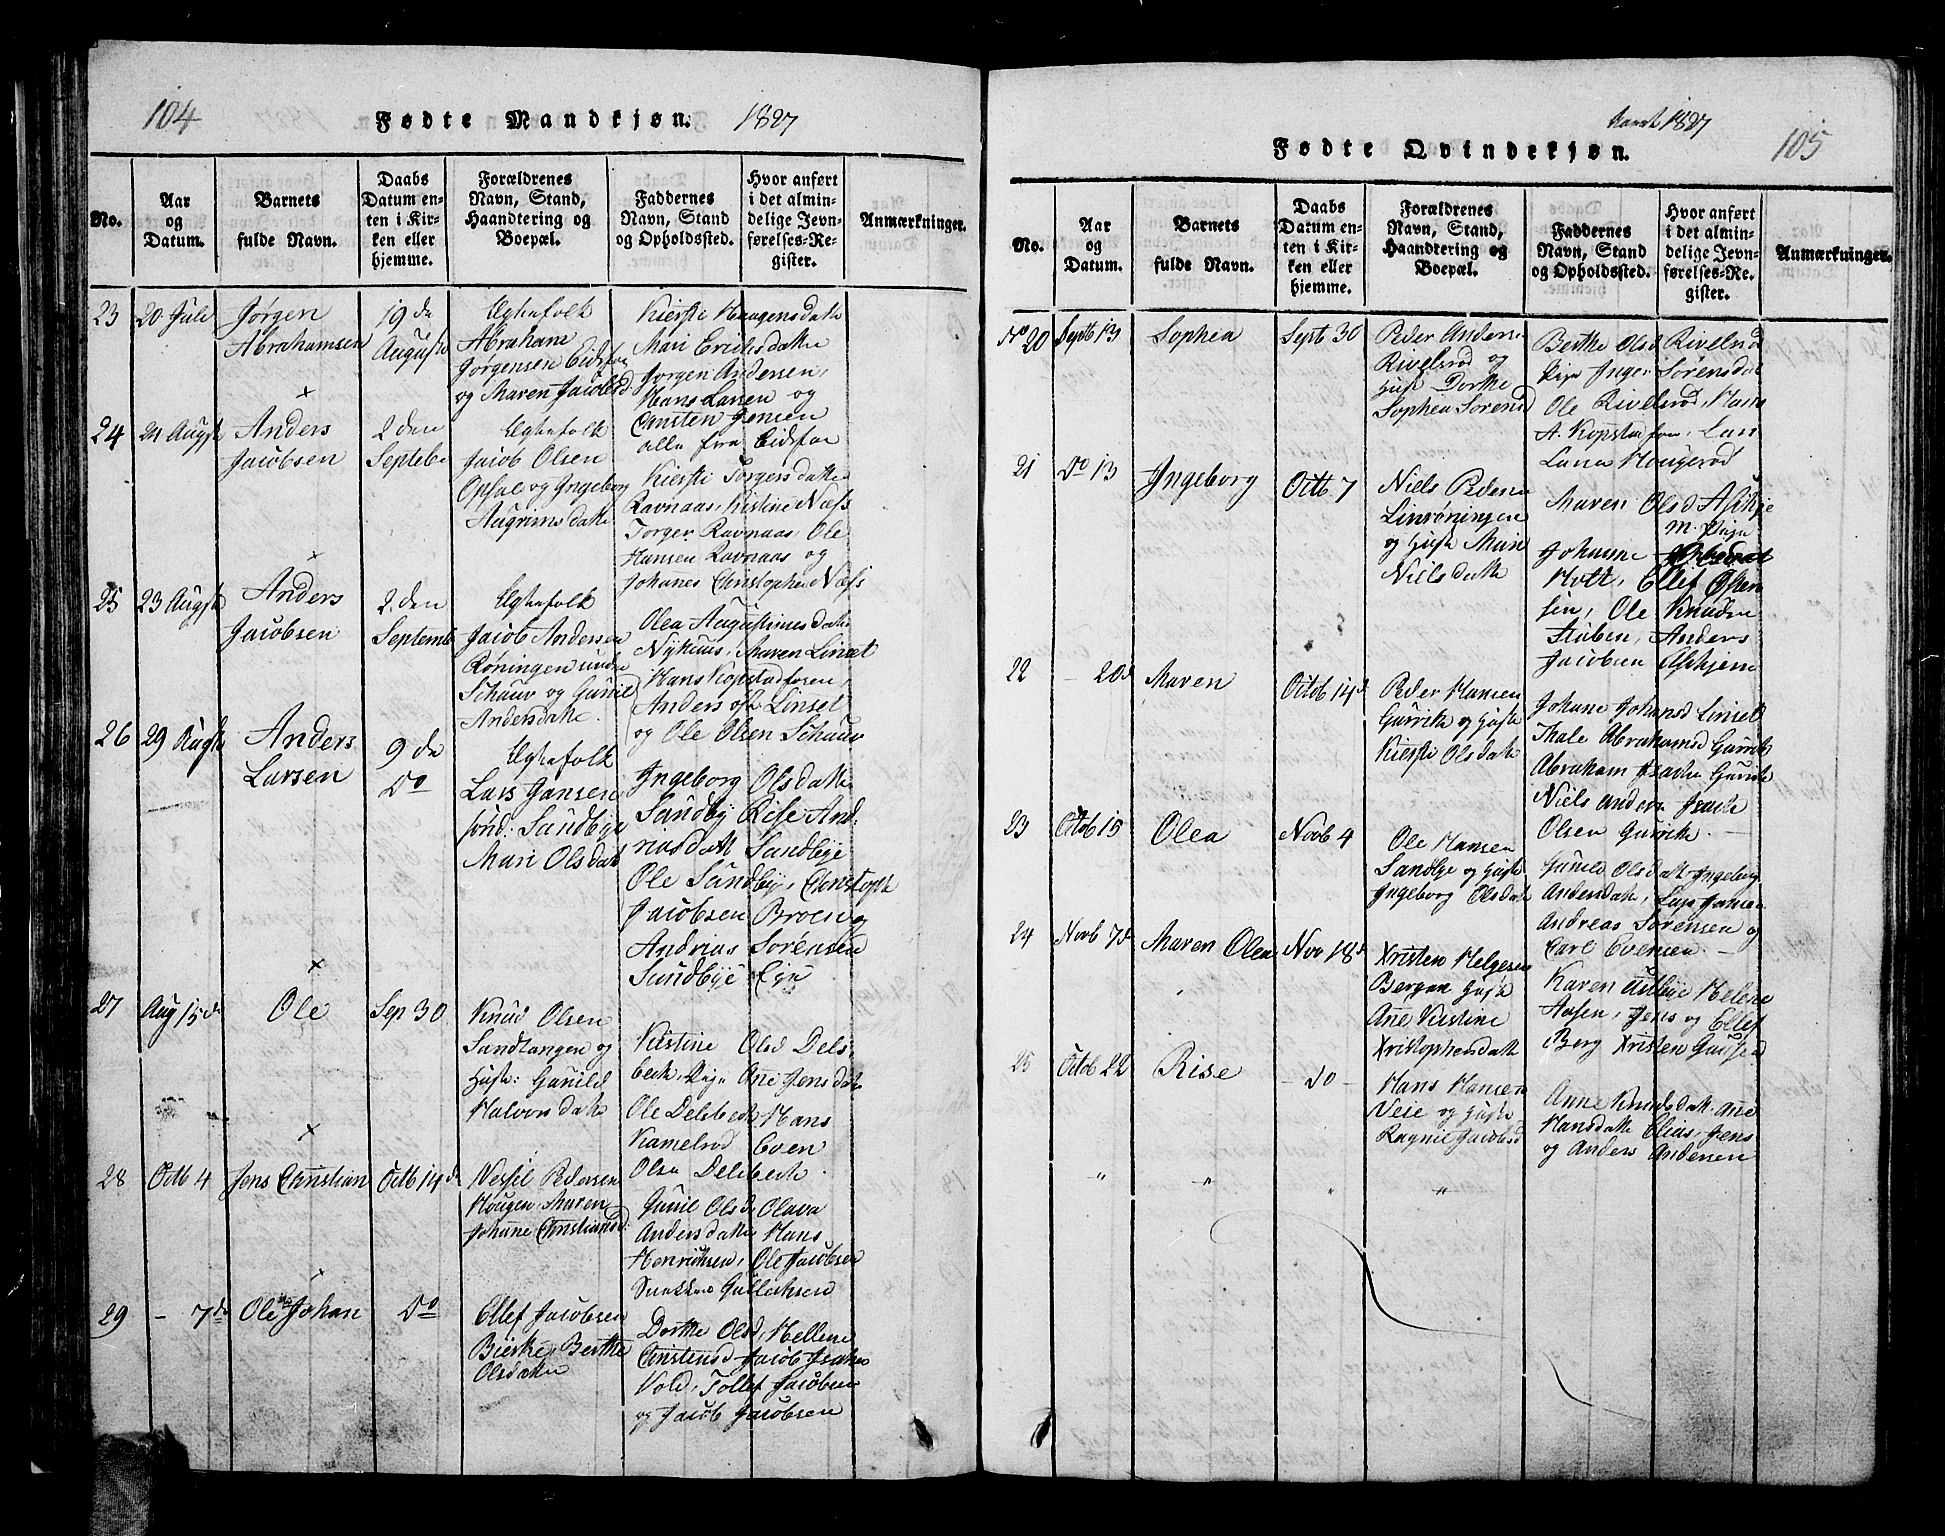 104
Fødte Mandkjøn. 1827
No.
Aar og Datum.
Barnets fulde Navn.
Daabs Datum enten i Kirken eller hjemme.
Forældrenes Navn, Stand, Haandtering og Boepæl.
Faddernes Navn, Stand og Opholdssted.
Hvor anført i det almindelige Jevnførelses-Register.
Anmærkninger.
23
20 Juli
Jørgen
Abrahamsen
19 da
August
Egtefolk
Abraham
Jørgensen Eidsfos
og Maren Jacobsd
Kierstie Haagensdatte
Mari Erichsdatte
Jørgen Andersen,
Hans Larsen og
Christen Jensen
alle fra Eidsfos
24
21 Augst
Anders
Jacobsen
2 den
Septebr
Egtefolk
Jacob Olsen
Opsal og Ingeborg
Augrimsdatte
Kiersti Torgersdatte
Ravnaas, Kistine Næss
Torger Ravnaas, Ole
Hansen Ravnaas og
Johanes Christophe Næss
25
23 Augst
Anders
Jacobsen
2. den
Septemb
Egtefolk
Jacob Andersen
Røningen unde
Schauv og Gunil
Andersdatte.
Olea Augustinusdatte
Nyhuus, Maren Linset
Hans Kopstadfosen,
Anders ofs Linset
og Ole Olsen Schauv
26
29 Augst
Anders
Larsen
9 da
Do
Egtefolk
Lars Jansen
sønd: Sandbye
Mari Olsdat
Ingeborg Olsdatte
Sandby Rise And:
riasdatt Sandbye
Ole Sandbye, Christoph
Jacobsen Broen og
Andrias Sørensen
Sundbye Eye
27
Aug 15d
Ole
Sep 30
Knud Olsen
Sandtangen og
Hust: Gunild
Halvorsdatte
Kistine Olsd Dels:
beck, Pige Ane Jensdatte
Ole Delebeck Hans
Kamelrød Even
Olsen Delebeck.
28
Octb 4
Jens Christian
Octb 14d
Nersfil Pedersen
Hougen Maren
Johanne Christiansd:
Gunil Olsd Olava
Andersdatte Hans
Henrichsen, Ole Jacobsen
Gullichsen
29
- 7d
Ole Johan
Do
Ellef Jacobsen
Bierke, Berthe
Olsdatte
Dorthe Olsd, Hellene
Christensd Jacob Isachsen
Vold, Tollef Jacobsen
og Jacob Jacobsen
Aaret 1827
Fødte Qvindekjøn.
105
No.
Aar og Datum.
Barnets fulde Navn.
Daabs Datum enten i Kirken eller hjemme.
Forældrenes Navn, Stand, Haandtering og Boepæl.
Faddernes Navn, Stand og Opholdssted.
Hvor anført i det almindelige Jevnførelses-Register.
Anmærkninger.
No 20
Septb 13
Sophea
Sept 30
Peder Anderse
Rivelsrød og
Hust Dorthe
Sophea Sørensd
Berthe Olsd Rivelsrød
Pige Inger Sørensdat
Ole Rivelsrød, Hans
A. Kopstadfosen, Lars
Larsen Hougerød
21
Do 13
Ingeborg
Octb 7
Niels Pederse
Linrøningen
og Hust Mari
Nielsdatte
Maren Olsd Askje
m. Pige
Johanne Olsdat
Holt, Ellef Espen
sen, Ole Knudsen
Stuben, Anders
Jacobsen Askjem
22
- 20d
Maren
Octob 14d
Peder Hansen
Gurrik og Huste
Kierstie Olsdatte
Johane Johansd Linset
Thale Abrahamsd Gurrik
Abraham Isachs Gurrik
Niels Anders Isach
Olsen Gurrik. -
23
Octob 15
Olea
Novb 4
Ole Hansen
Sandbye og Huste
Ingeborg Olsdatt
Gunild Olsdatt Ingeborg
Andersdatte, Lars Jansen
Andreas Sørensen og
Carl Evensen. -
24
Novb 7d
Maren Olea
Nov 18d
Xristen Helgesen
Bergan Hust
Ane Kirstine
Xristophersdatte
Karen Helene
Aasen, Jens og Ellef
Berg Xristen
25
Octob 22
Rise
- do -
Hans Hansen
Veie og Huste
Ragnil Jacobsd
Anne Knudsdatt, Ane
Hansdatte Elias, Jens
og Anders Andersen